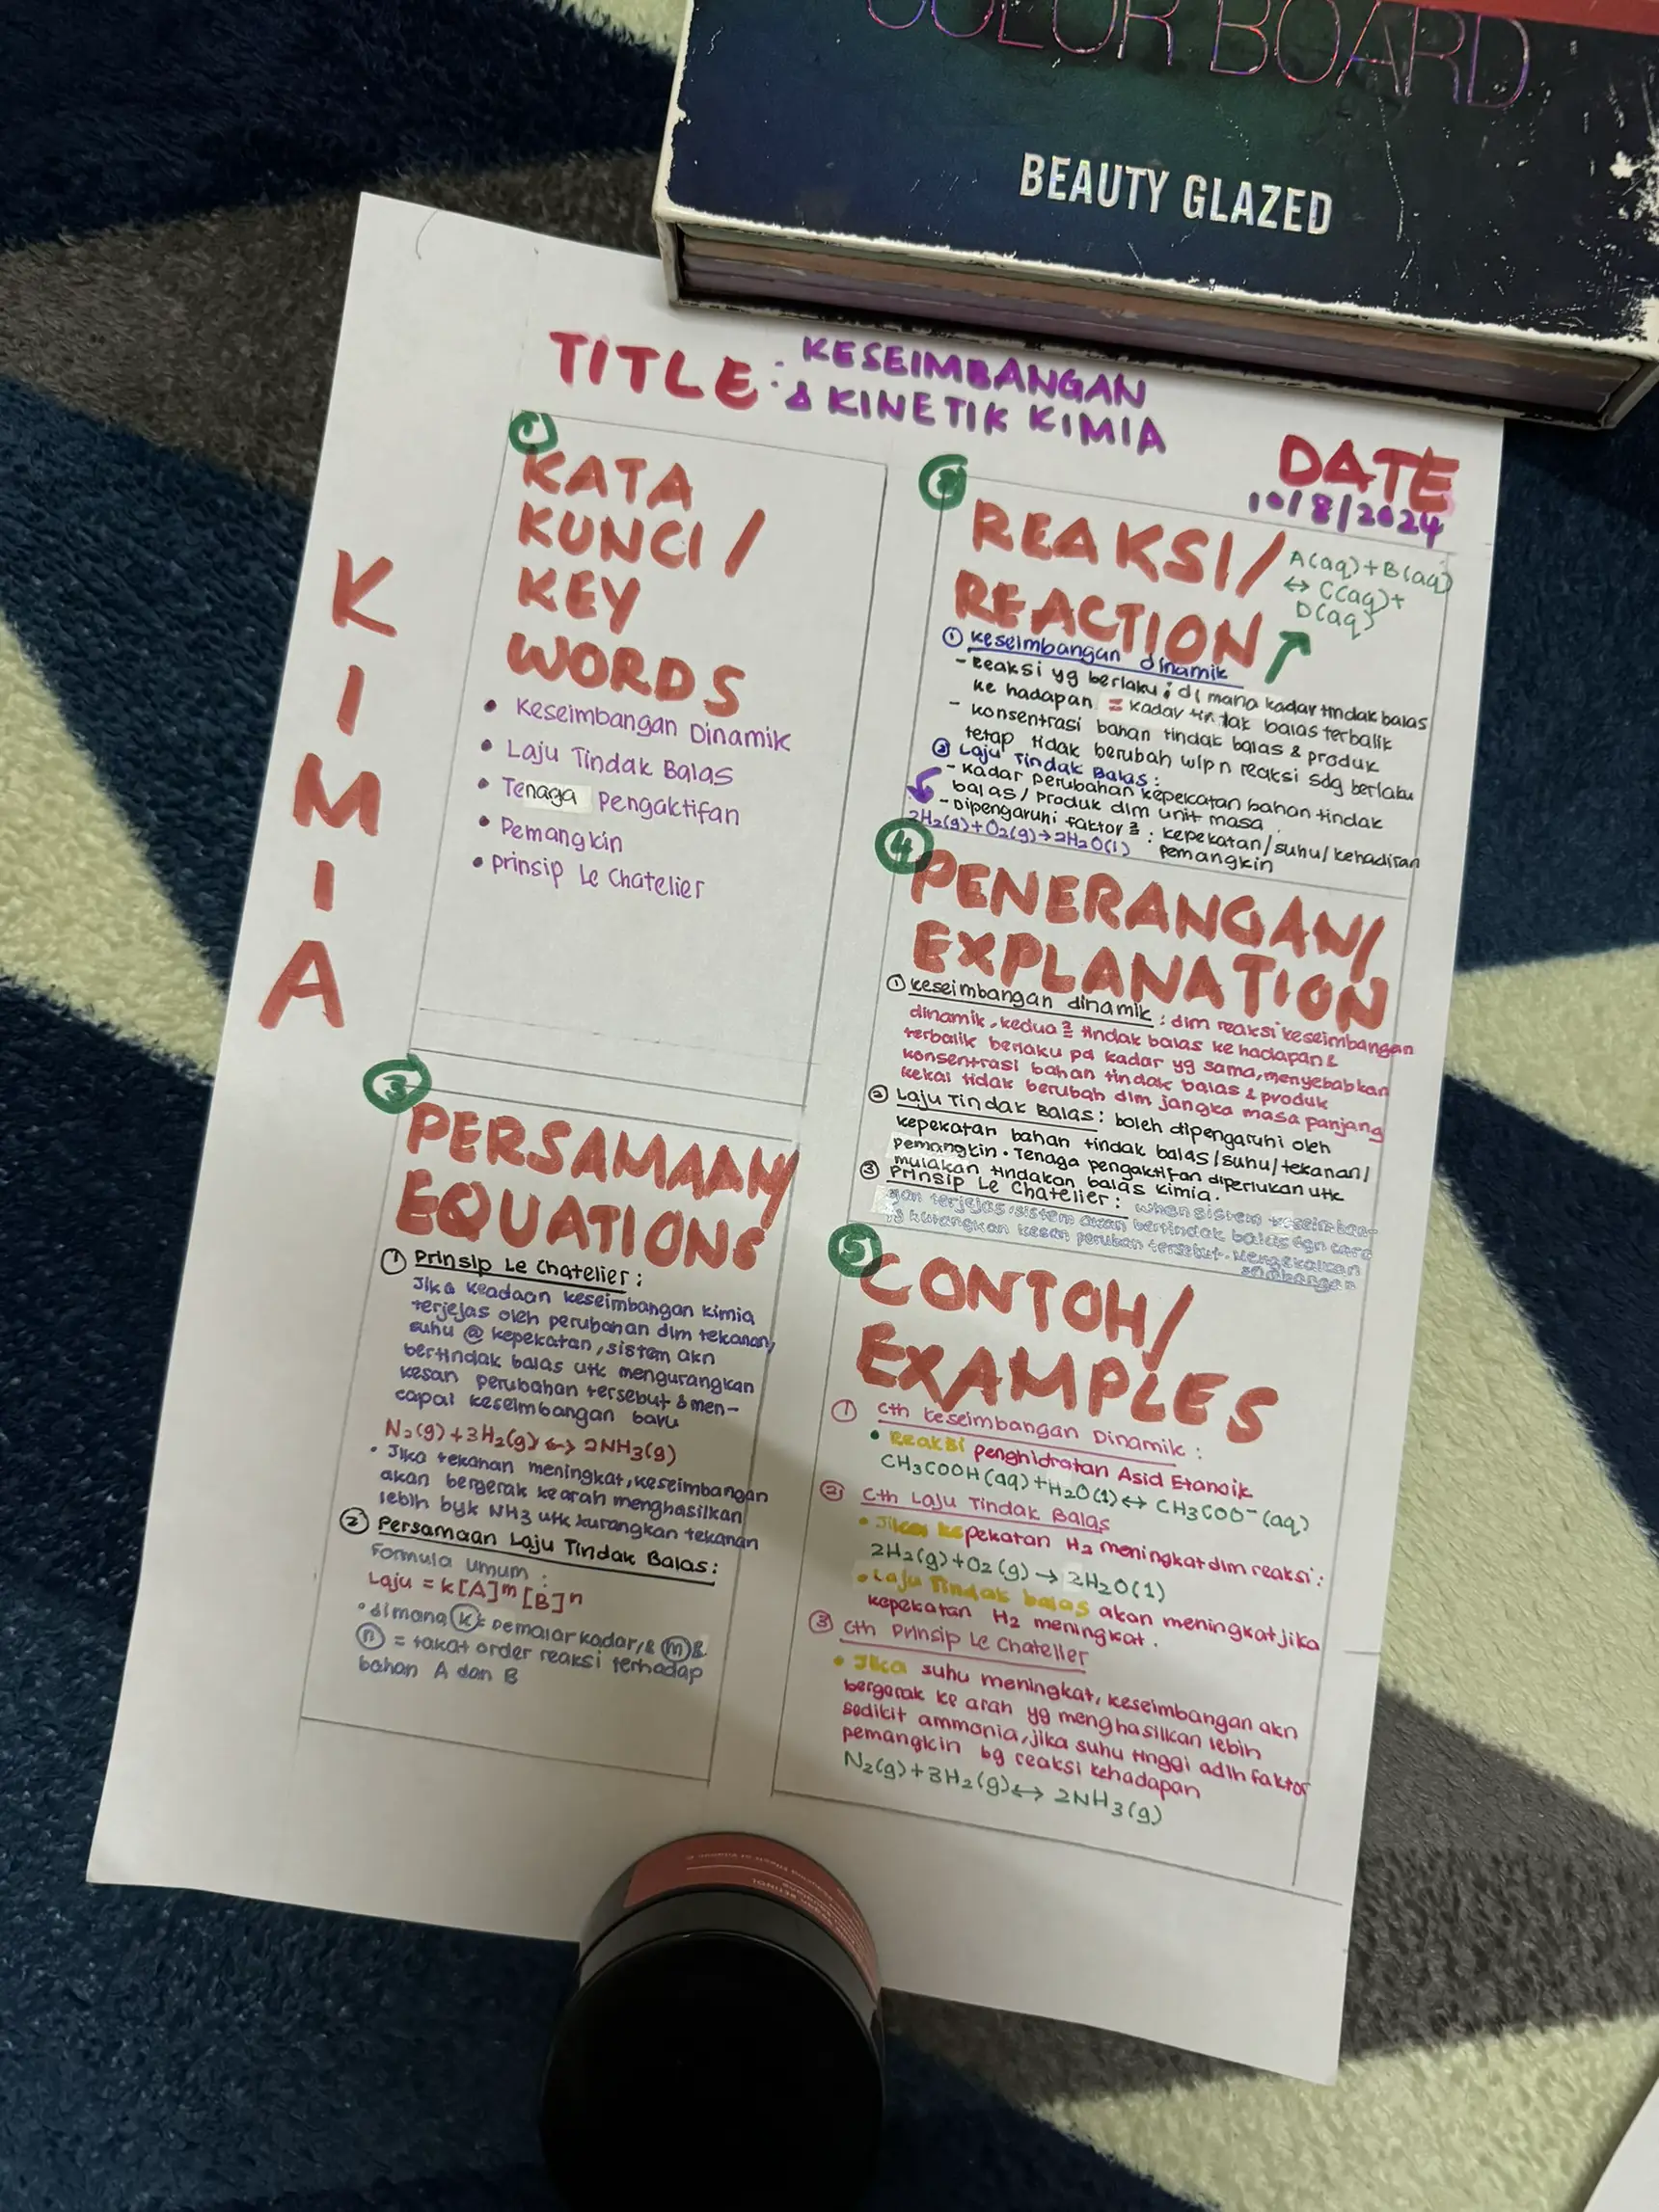 COLOR BOARD
BEAUTY GLAZED
TITLE : KESEIMBANGAN
& KINETIK KIMIA
DATE
10/8/2024
KIMIA
1
KATA
KUNCI /
KEY
WORDS
• Keseimbangan Dinamik
• Laju Tindak Balas
• Tenaga Pengaktifan
• Pemangkin
• prinsip Le Chatelier
REAKSI/
REACTION
A(aq)+B(aq)
↔ C(aq)+
D(aq)
① keseimbangan dinamik
- Reaksi yg berlaku ; di mana kadar tindak balas
ke hadapan = kadar tindak balas terbalik
- konsentrasi bahan tindak balas & produk
tetap tidak berubah wlpn reaksi sdg berlaku
② Laju Tindak Balas :
- Kadar perubahan kepekatan bahan tindak
balas / produk dlm unit masa .
- Dipengaruhi faktor² : kepekatan/suhu/kehadiran
pemangkin
2H₂(g)+O₂(g)→2H₂O(l)
3
PERSAMAAN/
EQUATIONS
① Prinsip Le Chatelier :
Jika keadaan keseimbangan kimia
terjejas oleh perubahan dlm tekanan/
suhu @ kepekatan, sistem akn
bertindak balas utk mengurangkan
kesan perubahan tersebut & men-
capai keseimbangan baru
N₂(g)+3H₂(g) ↔ 2NH₃(g)
• Jika tekanan meningkat, keseimbangan
akan bergerak kearah menghasilkan
lebih byk NH3 utk kurangkan tekanan
② Persamaan Laju Tindak Balas :
Formula umum :
Laju = k[A]ᵐ [B]ⁿ
• dimana k = pemalar kadar, & m &
n = takat order reaksi terhadap
bahan A dan B
4
PENERANGAN/
EXPLANATION
① keseimbangan dinamik : dlm reaksi keseimbangan
dinamik, kedua² tindak balas ke hadapan &
terbalik berlaku pd kadar yg sama, menyebabkan
konsentrasi bahan tindak balas & produk
kekal tidak berubah dlm jangka masa panjang
② Laju Tindak Balas : boleh dipengaruhi oleh
kepekatan bahan tindak balas/suhu/tekanan/
pemangkin. Tenaga pengaktifan diperlukan utk
mulakan tindakan balas kimia.
③ Prinsip Le Chatelier : when sistem keseimban-
gan terjejas, sistem akan bertindak balas dgn cara
yg kurangkan kesan tersebut. Mengekalkan
5
CONTOH/
EXAMPLES
① cth keseimbangan Dinamik :
• Reaksi penghidratan Asid Etanoik
CH₃COOH(aq)+H₂O(l)↔ CH₃COO⁻(aq)
② Cth Laju Tindak Balas
• Jika kepekatan H₂ meningkat dlm reaksi :
2H₂(g)+O₂(g) → 2H₂O(l)
• Laju Tindak balas akan meningkat jika
kepekatan H₂ meningkat .
③ cth Prinsip Le Chatelier
• Jika suhu meningkat, keseimbangan akn
bergerak ke arah yg menghasilkan lebih
sedikit ammonia, jika suhu tinggi adlh faktor
pemangkin bg reaksi kehadapan
N₂(g)+3H₂(g)↔ 2NH₃(g)